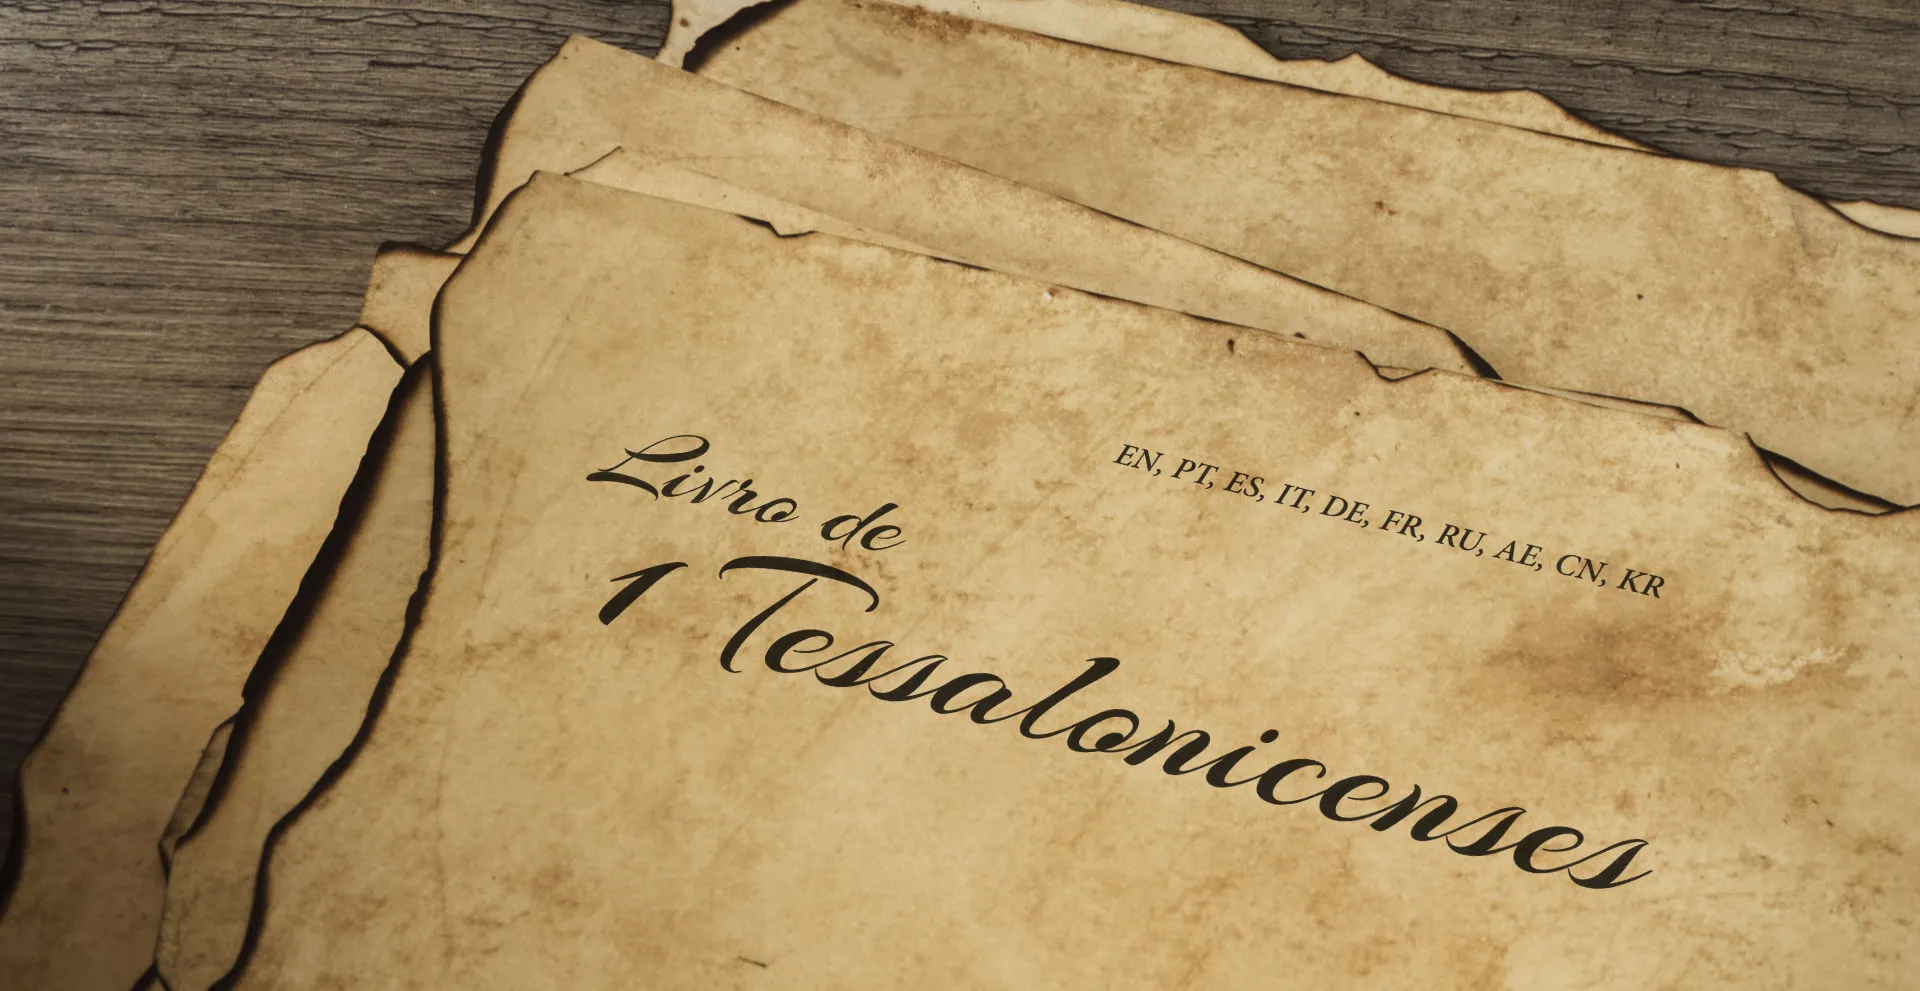 Livro de
1 Tessalonicenses
EN, PT, ES, IT, DE, FR, RU, AE, CN, KR